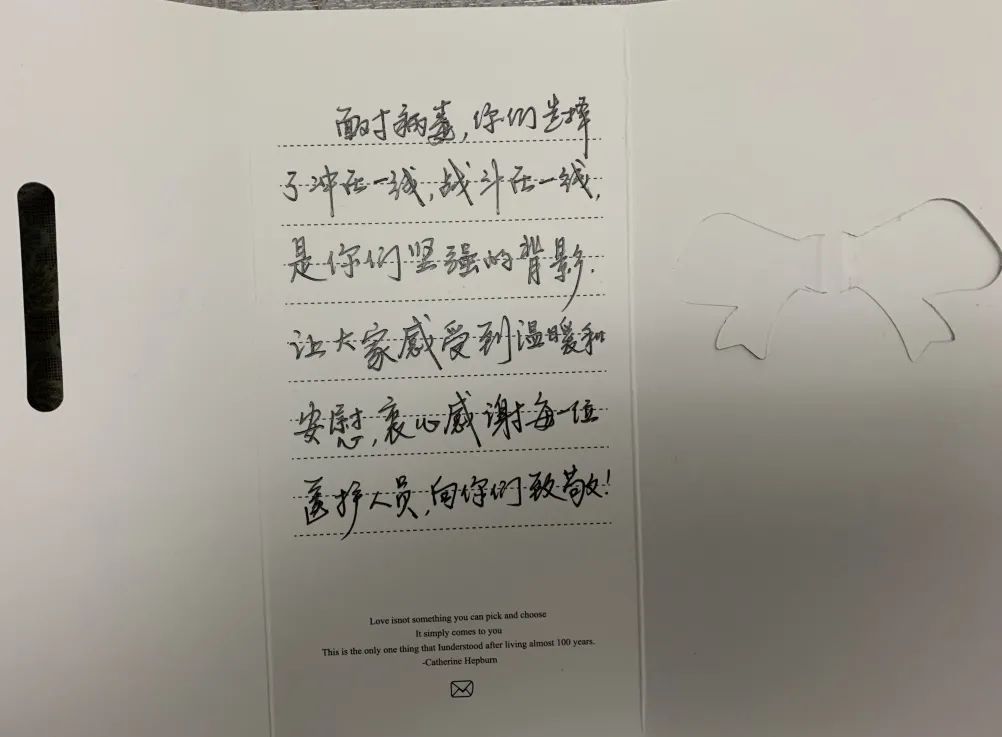 面对病毒,你们选择
了冲在一线,战斗在一线,
是你们坚强的背影.
让大家感受到温暖和
安慰,衷心感谢每一位
医护人员,向你们致敬!
Love isnot something you can pick and choose
It simply comes to you
This is the only one thing that Iunderstood after living almost 100 years.
-Catherine Hepburn